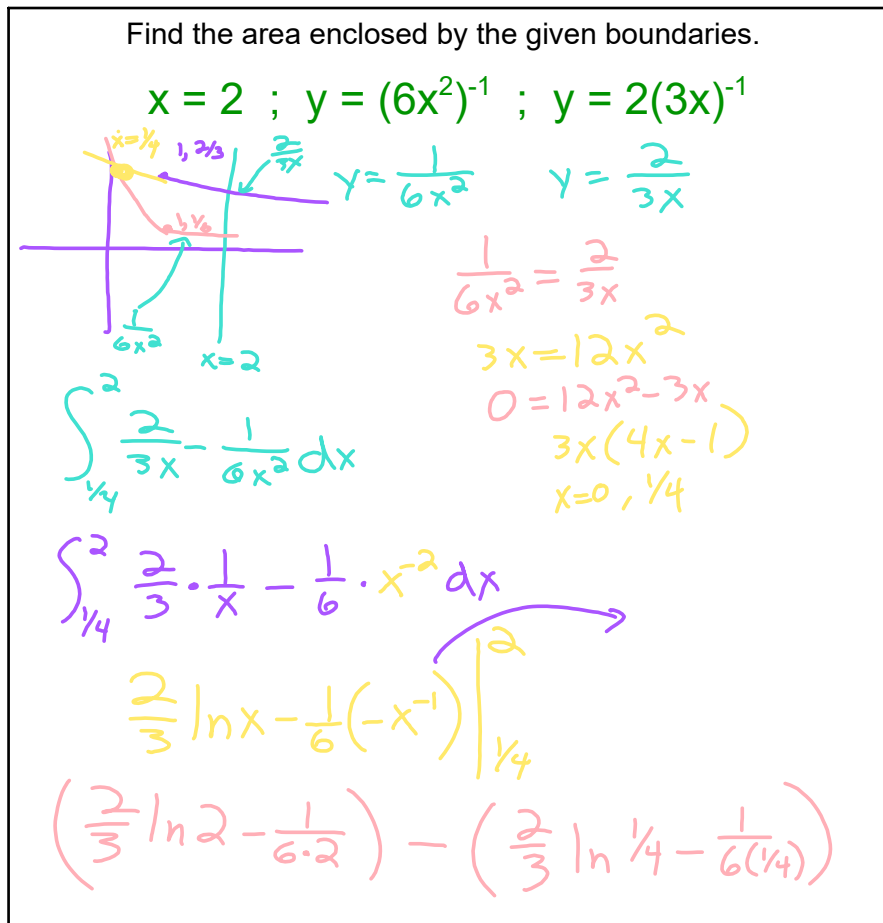 Find the area enclosed by the given boundaries.
x = 2 ; y = (6x²)⁻¹ ; y = 2(3x)⁻¹
x=1/4
1, 2/3
2/3x
1, 1/6
1/6x²
x=2
y = 1/6x²
y = 2/3x
1/6x² = 2/3x
3x = 12x²
0 = 12x² - 3x
3x(4x - 1)
x=0, 1/4
∫_{1/4}^{2} 2/3x - 1/6x² dx
∫_{1/4}^{2} 2/3 · 1/x - 1/6 · x⁻² dx
2/3 ln x - 1/6(-x⁻¹) |_{1/4}^{2}
(2/3 ln 2 - 1/6·2) - (2/3 ln 1/4 - 1/6(1/4))